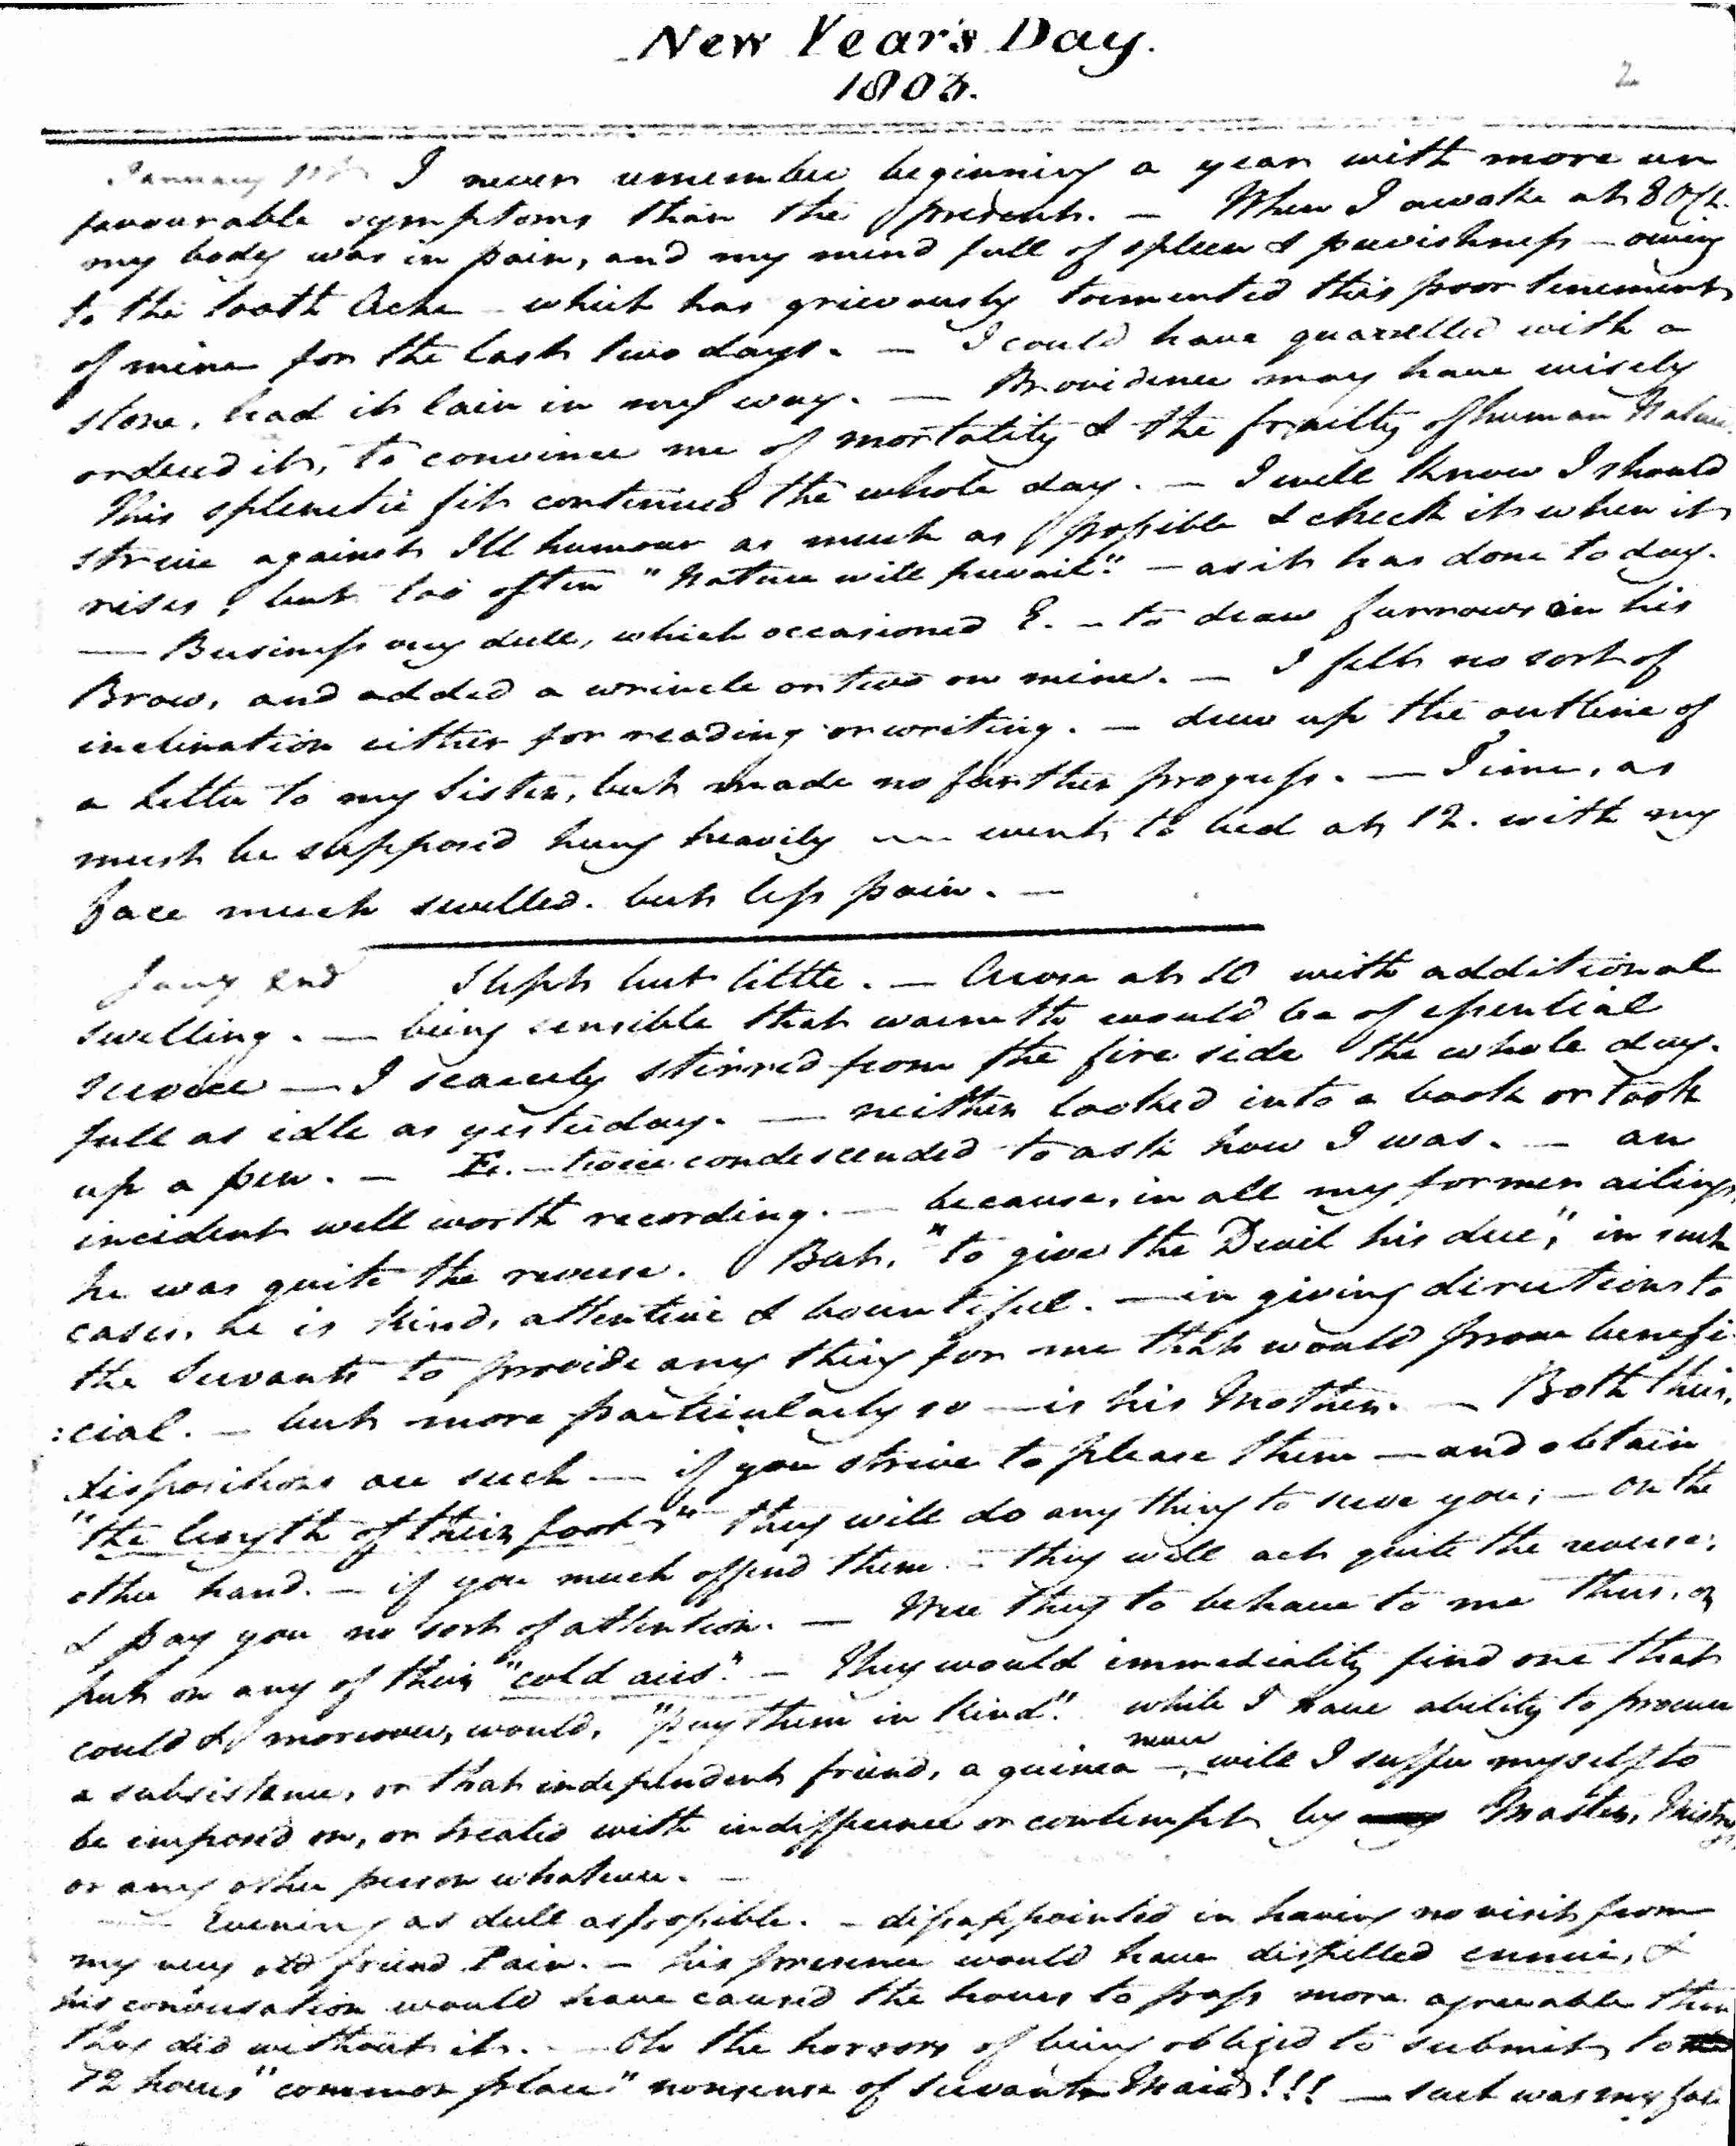 New Year's Day.
1803.
2
January 1st I never remember beginning a year with more un
favourable symptoms than the present. — When I awoke at 8 OCk.
my body was in pain, and my mind full of spleen & peevishness — owing
to the tooth Ache — which has grievously tormented this poor tenement
of mine for the last two days. — I could have quarrelled with a
stone, had it lain in my way. — Providence may have wisely
ordered it, to convince me of mortality & the frailty of human Nature.
This splenetic fit continued the whole day. — I well know I should
strive against Ill humour as much as possible & check it when it
rises; but too often "Nature will prevail." — as it has done to day.
— Business very dull, which occasioned E. — to draw furrows in his
Brow, and added a wrincle or two on mine. — I felt no sort of
inclination either for reading or writing. — drew up the outline of
a letter to my Sister, but made no further progress. — Time, as
must be supposed hung heavily — went to bed at 12. with my
face much swelled. but less pain. —
Jany 2nd Slept but little. — Arose at 10 with additional
swelling. — being sensible that warmth would be of essential
service — I scarcely stirred from the fire side the whole day.
full as idle as yesterday. — neither looked into a book or took
up a pen. — E. — twice condescended to ask how I was. — an
incident well worth recording. — because, in all my former ailings,
he was quite the reverse. But, "to give the Devil his due," in such
cases, he is kind, attentive & bountiful. — in giving directions to
the Servants to provide any thing for me that would prove benefi
:cial. — but more particularly so — is his Mother. — Both their
dispositions are such — if you strive to please them — and obtain
"the length of their foot," they will do any thing to serve you; — on the
other hand. — if you much offend them — they will act quite the reverse;
& pay you no sort of attention. — Were they to behave to me thus, or
put on any of their "cold airs". — They would immediately find one that
could & moreover, would, "pay them in kind". while I have ability to procure
a subsistance, or that independent friend, a guinea —, never will I suffer myself to
be imposed on, or treated with indifference or contempt by Master, Mistress,
or any other person whatever. —
— Evening as dull as possible. — disappointed in having no visit from
my very old friend Pain. — his presence would have dispelled ennui, &
his conversation would have caused the hours to pass more agreeable than
they did without it. — Oh the horrors of being obliged to submit to
12 hours "common place" nonsense of Servant Maids!!! — such was my fate